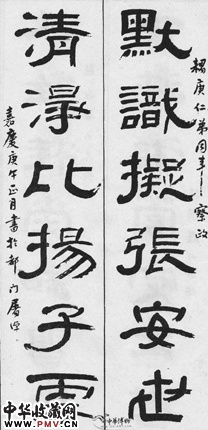 庚仁弟同年察政
默識擬張安世
清淨比揚子雲
嘉慶庚午正月書於都門
中华收藏网
www.PMV.CN
中华博物